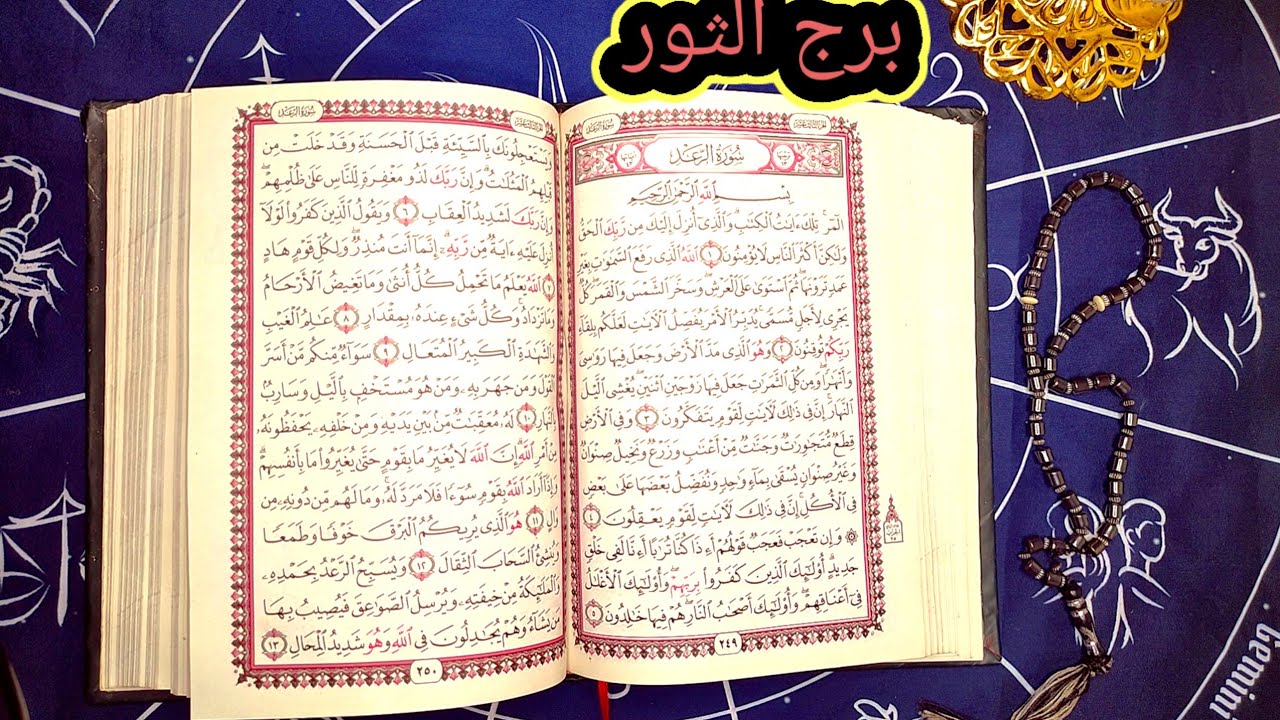 برج الثور
سُورَةُ الرَّعْدِ
سُورَةُ الرَّعْدِ
بِسْمِ اللَّهِ الرَّحْمَٰنِ الرَّحِيمِ
الٓمٓرۚ تِلْكَ ءَايَٰتُ ٱلْكِتَٰبِۗ وَٱلَّذِىٓ أُنزِلَ إِلَيْكَ مِن رَّبِّكَ ٱلْحَقُّ
وَلَٰكِنَّ أَكْثَرَ ٱلنَّاسِ لَا يُؤْمِنُونَ ١ ٱللَّهُ ٱلَّذِى رَفَعَ ٱلسَّمَٰوَٰتِ بِغَيْرِ
عَمَدٍ تَرَوْنَهَاۖ ثُمَّ ٱسْتَوَىٰ عَلَى ٱلْعَرْشِۖ وَسَخَّرَ ٱلشَّمْسَ وَٱلْقَمَرَۖ كُلٌّ
يَجْرِى لِأَجَلٍ مُّسَمًّىۚ يُدَبِّرُ ٱلْأَمْرَ يُفَصِّلُ ٱلْءَايَٰتِ لَعَلَّكُم بِلِقَآءِ
رَبِّكُمْ تُوقِنُونَ ٢ وَهُوَ ٱلَّذِى مَدَّ ٱلْأَرْضَ وَجَعَلَ فِيهَا رَوَٰسِىَ
وَأَنْهَٰرًاۖ وَمِن كُلِّ ٱلثَّمَرَٰتِ جَعَلَ فِيهَا زَوْجَيْنِ ٱثْنَيْنِۖ يُغْشِى ٱلَّيْلَ
ٱلنَّهَارَۚ إِنَّ فِى ذَٰلِكَ لَءَايَٰتٍ لِّقَوْمٍ يَتَفَكَّرُونَ ٣ وَفِى ٱلْأَرْضِ
قِطَعٌ مُّتَجَٰوِرَٰتٌ وَجَنَّٰتٌ مِّنْ أَعْنَٰبٍ وَزَرْعٌ وَنَخِيلٌ صِنْوَانٌ
وَغَيْرُ صِنْوَانٍ يُسْقَىٰ بِمَآءٍ وَٰحِدٍ وَنُفَضِّلُ بَعْضَهَا عَلَىٰ بَعْضٍ
فِى ٱلْأُكُلِۚ إِنَّ فِى ذَٰلِكَ لَءَايَٰتٍ لِّقَوْمٍ يَعْقِلُونَ ٤
۞ وَإِن تَعْجَبْ فَعَجَبٌ قَوْلُهُمْ أَءِذَا كُنَّا تُرَٰبًا أَءِنَّا لَفِى خَلْقٍ
جَدِيدٍۗ أُو۟لَٰٓئِكَ ٱلَّذِينَ كَفَرُوا۟ بِرَبِّهِمْۖ وَأُو۟لَٰٓئِكَ ٱلْأَغْلَٰلُ
فِىٓ أَعْنَاقِهِمْۖ وَأُو۟لَٰٓئِكَ أَصْحَٰبُ ٱلنَّارِۖ هُمْ فِيهَا خَٰلِدُونَ ٥
٢٤٩
سُورَةُ الرَّعْدِ
وَيَسْتَعْجِلُونَكَ بِٱلسَّيِّئَةِ قَبْلَ ٱلْحَسَنَةِ وَقَدْ خَلَتْ مِن
قَبْلِهِمُ ٱلْمَثُلَٰتُۗ وَإِنَّ رَبَّكَ لَذُو مَغْفِرَةٍ لِّلنَّاسِ عَلَىٰ ظُلْمِهِمْۖ
وَإِنَّ رَبَّكَ لَشَدِيدُ ٱلْعِقَابِ ٦ وَيَقُولُ ٱلَّذِينَ كَفَرُوا۟ لَوْلَآ
أُنزِلَ عَلَيْهِ ءَايَةٌ مِّن رَّبِّهِۦٓۗ إِنَّمَآ أَنتَ مُنذِرٌۖ وَلِكُلِّ قَوْمٍ هَادٍ
٧ ٱللَّهُ يَعْلَمُ مَا تَحْمِلُ كُلُّ أُنثَىٰ وَمَا تَغِيضُ ٱلْأَرْحَامُ
وَمَا تَزْدَادُۖ وَكُلُّ شَىْءٍ عِندَهُۥ بِمِقْدَارٍ ٨ عَٰلِمُ ٱلْغَيْبِ
وَٱلشَّهَٰدَةِ ٱلْكَبِيرُ ٱلْمُتَعَالِ ٩ سَوَآءٌ مِّنكُم مَّنْ أَسَرَّ
ٱلْقَوْلَ وَمَن جَهَرَ بِهِۦ وَمَنْ هُوَ مُسْتَخْفٍۭ بِٱلَّيْلِ وَسَارِبٌۢ
بِٱلنَّهَارِ ١٠ لَهُۥ مُعَقِّبَٰتٌ مِّنۢ بَيْنِ يَدَيْهِ وَمِنْ خَلْفِهِۦ يَحْفَظُونَهُۥ
مِنْ أَمْرِ ٱللَّهِۗ إِنَّ ٱللَّهَ لَا يُغَيِّرُ مَا بِقَوْمٍ حَتَّىٰ يُغَيِّرُوا۟ مَا بِأَنفُسِهِمْۗ
وَإِذَآ أَرَادَ ٱللَّهُ بِقَوْمٍ سُوٓءًا فَلَا مَرَدَّ لَهُۥۚ وَمَا لَهُم مِّن دُونِهِۦ مِن
وَالٍ ١١ هُوَ ٱلَّذِى يُرِيكُمُ ٱلْبَرْقَ خَوْفًا وَطَمَعًا
وَيُنشِئُ ٱلسَّحَابَ ٱلثِّقَالَ ١٢ وَيُسَبِّحُ ٱلرَّعْدُ بِحَمْدِهِۦ
وَٱلْمَلَٰٓئِكَةُ مِنْ خِيفَتِهِۦ وَيُرْسِلُ ٱلصَّوَٰعِقَ فَيُصِيبُ بِهَا
مَن يَشَآءُ وَهُمْ يُجَٰدِلُونَ فِى ٱللَّهِ وَهُوَ شَدِيدُ ٱلْمِحَالِ ١٣
٢٥٠
gemini